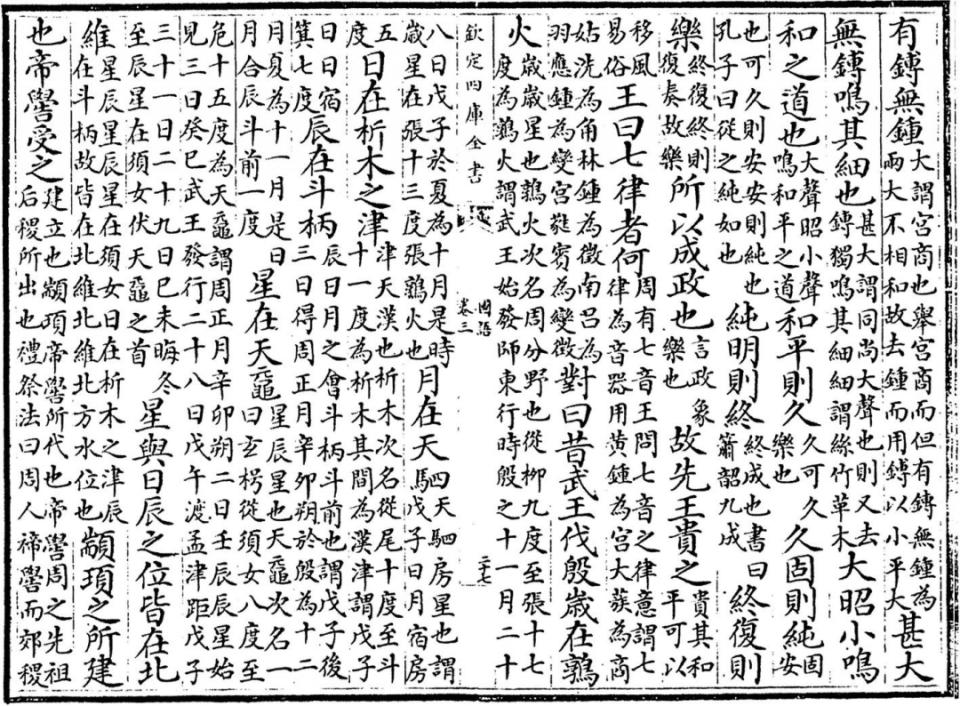 有鎛無鍾大謂宮商也舉宮商而但有鎛無鍾為兩大不相和故去鍾而用鎛以小平大甚大
無鎛鳴其細也甚大謂同尚大聲也則又去鎛獨鳴其細細謂絲竹革木大昭小鳴
和之道也大聲昭小聲鳴和平之道和平則久久可久樂也久固則純固安
也可久則安安則純也孔子曰從之純如也純明則終終成也書曰簫韶九成終復則
樂終復終則復奏故樂所以成政也言政象樂也故先王貴之貴其和平可以
移風易俗王曰七律者何周有七音王問七音之律意謂七律為音器用黃鍾為宮大蔟為商
姑洗為角林鍾為徵南呂為羽應鍾為變宮蕤賓為變徵對曰昔武王伐殷歲在鶉
火歲歲星也鶉火次名周分野也從柳九度至張十七度為鶉火謂武王始發師東行時殷之十一月二十
欽定四庫全書 國語 卷三 二十七
八日戊子於夏為十月是時歲星在張十三度張鶉火也月在天駟天駟房星也謂戊子日月宿房
五度日在析木之津津天漢也析木次名從尾十度至斗十一度為析木其間為漢津謂戊子
日日宿箕七度辰在斗柄辰日月之會斗柄斗前也謂戊子後三日得周正月辛卯朔於殷為十二
月夏為十一月是日月合辰斗前一度星在天黿星辰星也天黿次名一曰玄枵從須女八度至
危十五度為天黿謂周正月辛卯朔二日壬辰辰星始見三日癸巳武王發行二十八日戊午渡孟津距戊子
三十一日二十九日己未晦冬至辰星在須女伏天黿之首星與日辰之位皆在北
維星辰星辰星在須女日在析木之津辰在斗柄故皆在北維北維北方水位也顓頊之所建
也帝嚳受之建立也顓頊帝嚳所代也帝嚳周之先祖后稷所出也禮祭法曰周人禘嚳而郊稷